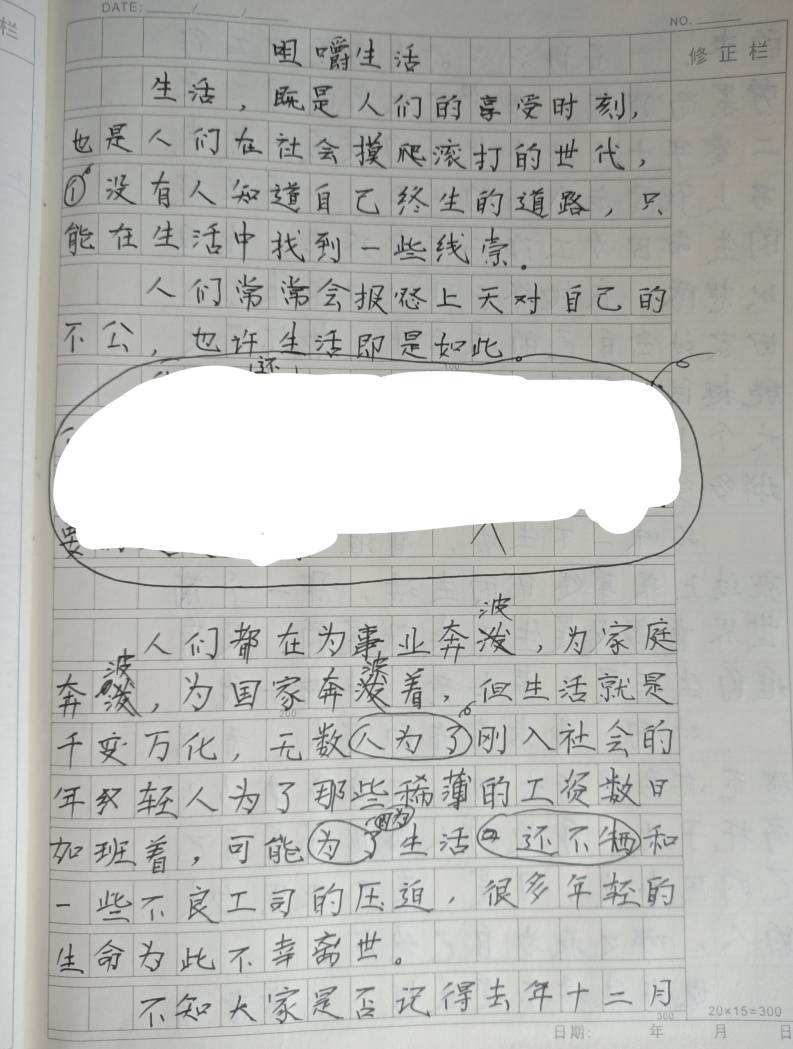 DATE: / /
NO.
栏
修正栏
咀嚼生活
生活，既是人们的享受时刻，
也是人们在社会摸爬滚打的世代，
①没有人知道自己终生的道路，只
能在生活中找到一些线索。
人们常常会报怨上天对自己的
不公，也许生活即是如此。
还
100
要
波
人们都在为事业奔泼，为家庭
波 波
奔泼，为国家奔泼着，但生活就是
200
千变万化，无数人为了刚入社会的
年轻人为了那些稀薄的工资数日
因为
加班着，可能为了生活还不牺和
一些不良工司的压迫，很多年轻的
生命为此不幸离世。
不知大家是否记得去年十二月
300
20×15=300
日期： 年 月 日